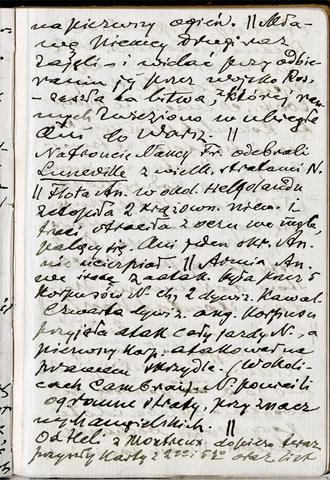 na pierwszy ogień. || Mła-
wę Niemcy drugi raz
zajęli - i widać przy odbie-
raniu jej przez wojsko Ros.
- zaszła ta bitwa, z której ran-
nych zwieziono w ubiegłą
do Warsz. ||
Na froncie Nancy Fr. odebrali
Luneville z wielk. stratami N.
|| Flota An. w okol. Helgolandu
zatopiła 2 krążown. niem. i
trzeci straciła z oczu we mgle
palący się. Ani jeden okr. An.
nie ucierpiał || Armia An.
atak. była przez 5
korpusów N. ch, 2 dywiz. kawal.
Czwarta dywiz. ang. korpusu
przyjęła atak całej jazdy N., a
pierwszy korp. atakowała na
prawem skrzydle. (W okoli-
cach Cambrai) N. ponieśli
ogromne straty, przy znacz
nych angielskich. ||
Od Heli z Montreux dopiero teraz
przyszły karty z 2go i 5go oraz list